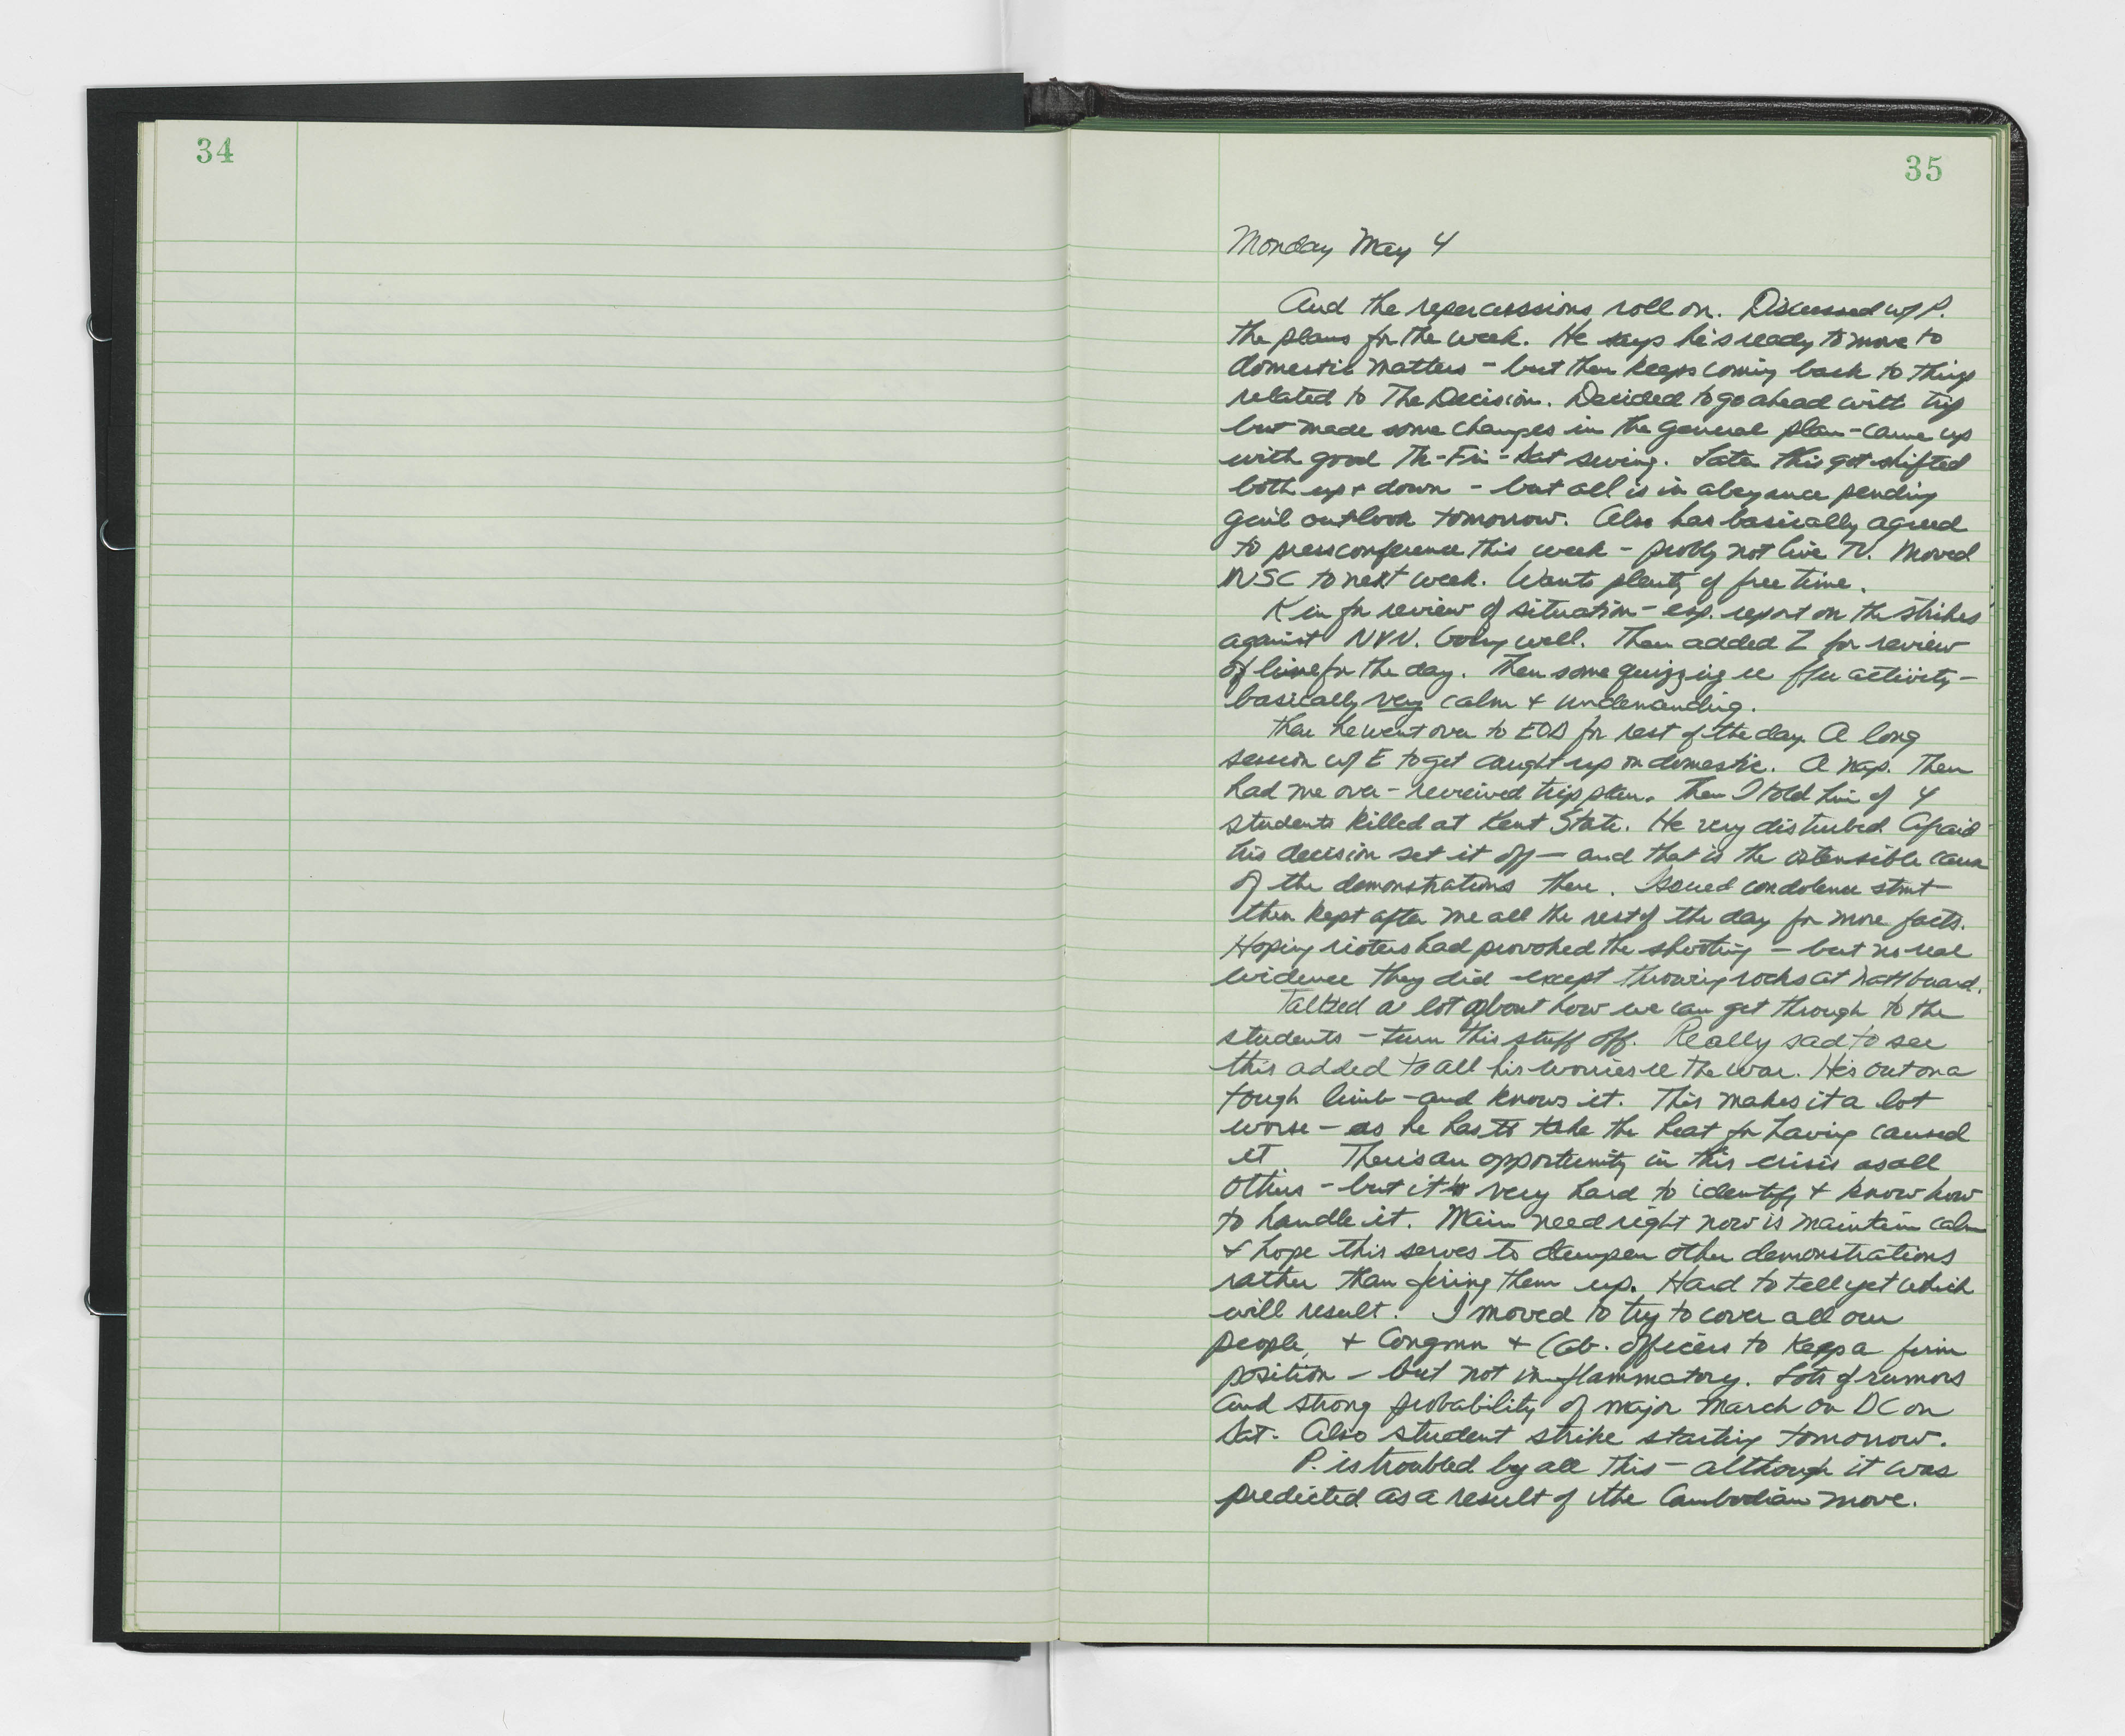 34
35
Monday May 4
And the repercussions roll on. Discussed w/ P.
the plans for the week. He says he's ready to move to
domestic matters - but then keeps coming back to things
related to The Decision. Decided to go ahead with trip
but made some changes in the general plan - came up
with good Th-Fri-Sat swing. Later this got shifted
both up + down - but all is in abeyance pending
gen'l outlook tomorrow. Also has basically agreed
to press conference this week - probly not live TV. Moved
NSC to next week. Wants plenty of free time.
K in for review of situation - esp. report on the strikes
against NVN. Going well. Then added Z for review
of line for the day. Then some quizzing re ffu activity -
basically very calm + undemanding.
Then he went over to EOB for rest of the day. A long
session w/ E to get caught up on domestic. A nap. Then
had me over - reviewed trip plan. Then I told him of 4
students killed at Kent State. He very disturbed. Afraid
his decision set it off - and that is the ostensible cause
of the demonstrations there. Issued condolence stmt
then kept after me all the rest of the day for more facts.
Hoping rioters had provoked the shooting - but no real
evidence they did - except throwing rocks at Natl Guard.
Talked a lot about how we can get through to the
students - turn this stuff off. Really sad to see
this added to all his worries re the war. He's out on a
tough limb - and knows it. This makes it a lot
worse - as he has to take the heat for having caused
it There's an opportunity in this crisis as all
others - but it is very hard to identify + know how
to handle it. Main need right now is maintain calm
+ hope this serves to dampen other demonstrations
rather than firing them up. Hard to tell yet which
will result. I moved to try to cover all our
people, + Congmn + Cab. officers to keep a firm
position - but not inflammatory. Lots of rumors
and strong probability of major march on DC on
Sat. Also student strike starting tomorrow.
P. is troubled by all this - although it was
predicted as a result of the Cambodian move.